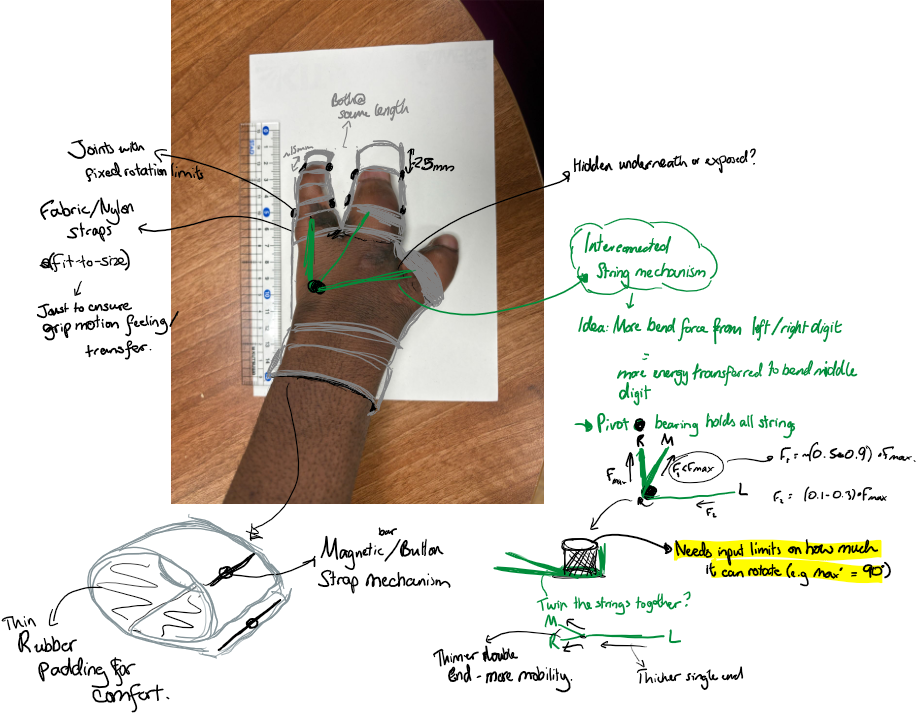 Both @
same length
~15mm
~25mm
Joints with
fixed rotation limits
Fabric/Nylon
straps
(fit-to-size)
Just to ensure
grip motion feeling/
transfer.
Hidden underneath or exposed?
Interconnected
String mechanism
Idea: More bend force from left/right digit
=
more energy transferred to bend middle
digit
→ Pivot bearing holds all strings
R M
F₁<Fmax
F₁ = ~(0.5-0.9) • Fmax.
L
F₂
F₂ = (0.1-0.3) • Fmax
Needs input limits on how much
it can rotate (e.g max = 90°)
Twin the strings together?
M
R
L
Thinner double
End - more mobility.
Thicher single end
Magnetic bar/Button
Strap mechanism
Thin
Rubber
Padding for
comfort.